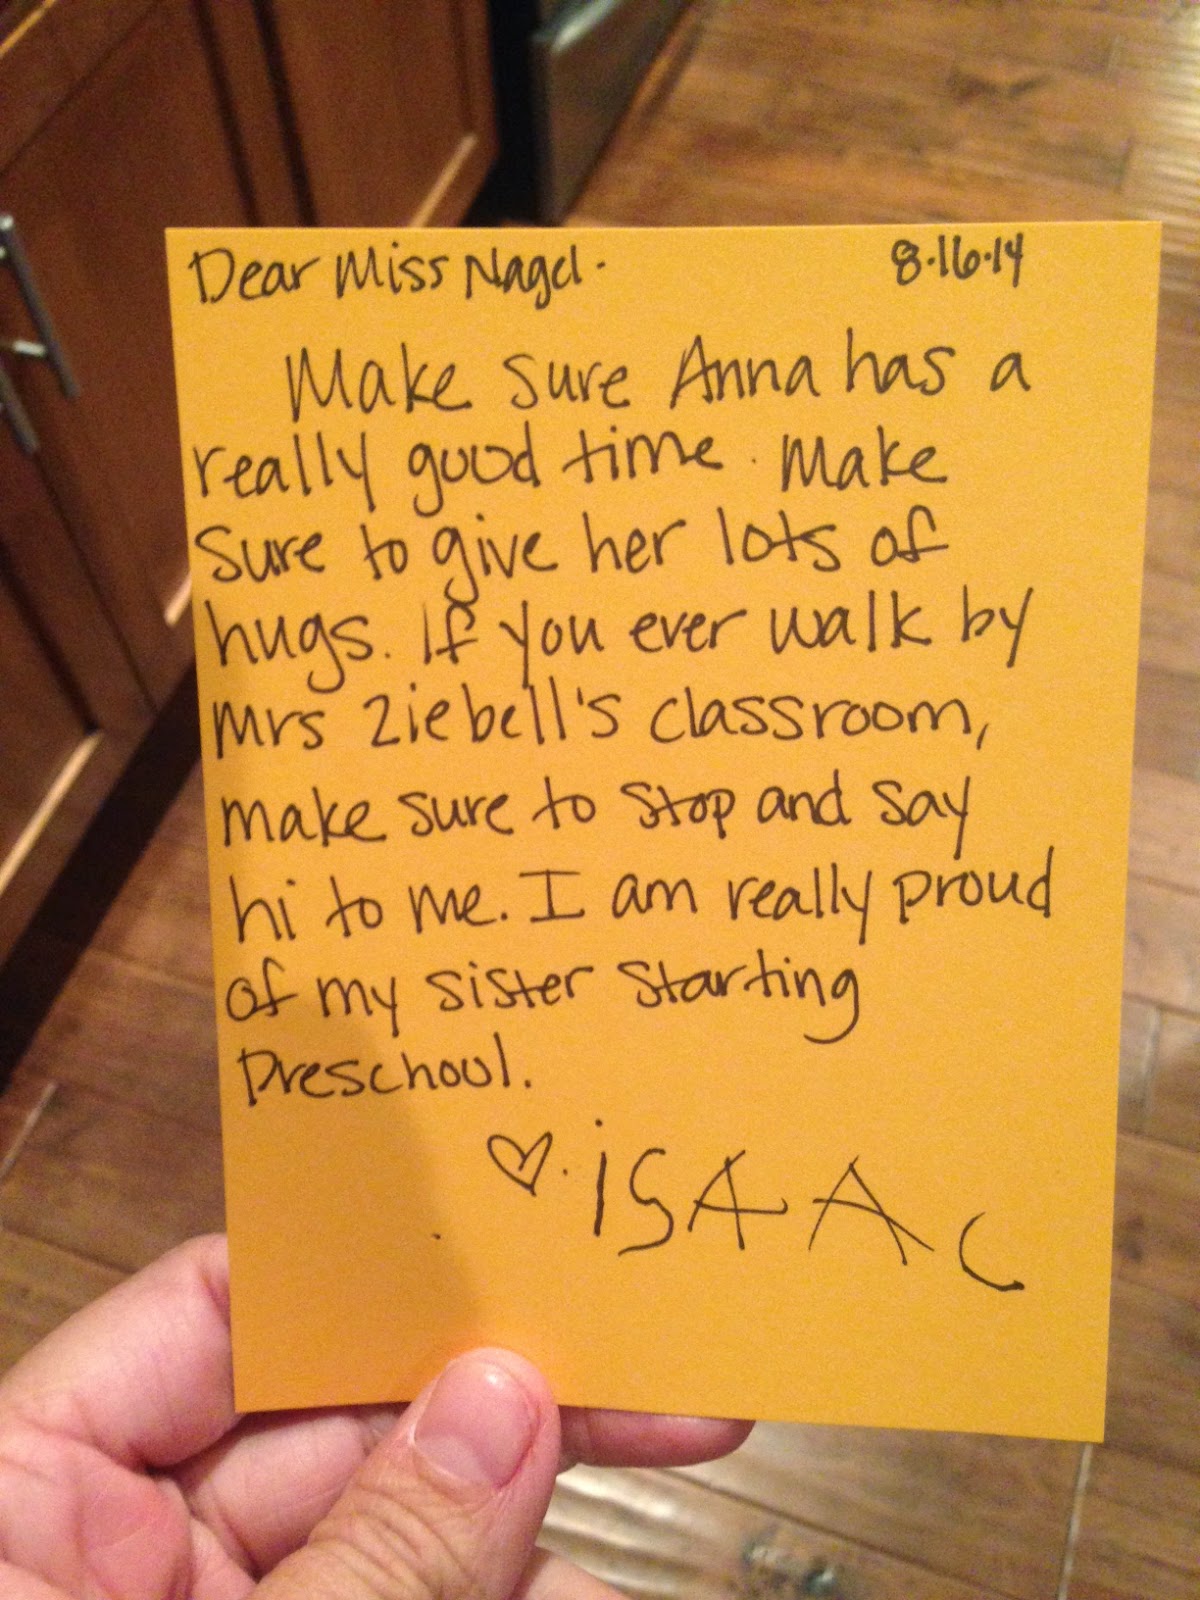 Dear Miss Nagel. 8.16.14
Make sure Anna has a
really good time. Make
sure to give her lots of
hugs. If you ever walk by
Mrs Ziebell's classroom,
make sure to stop and say
hi to me. I am really proud
of my sister starting
Preschool.
♡. iSAAC